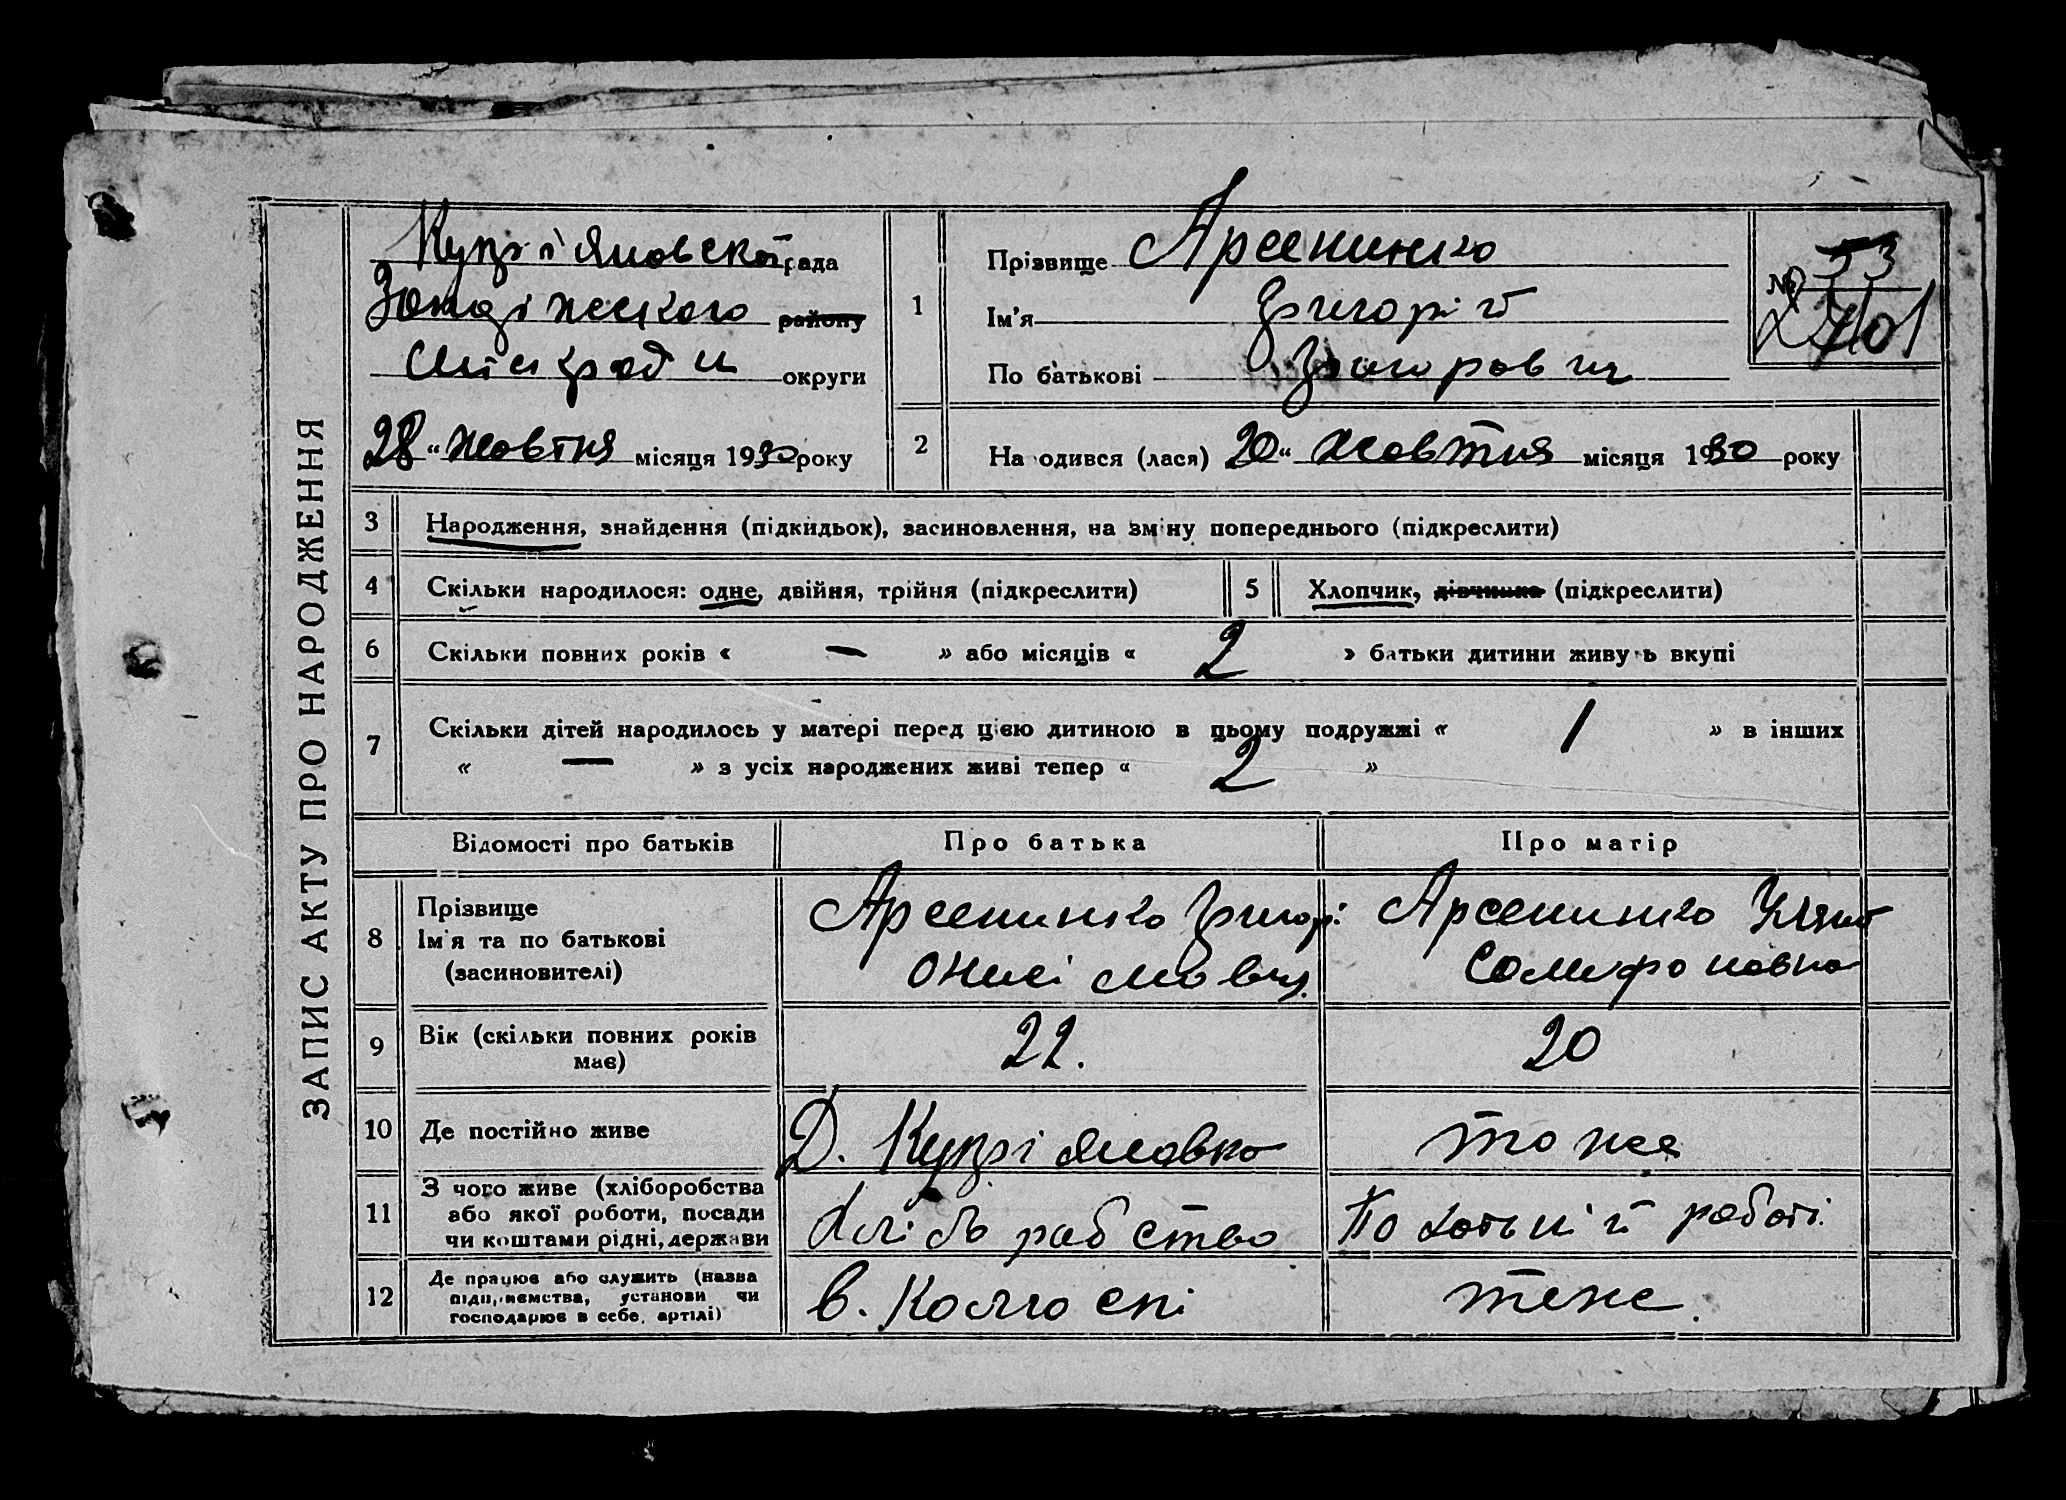 ЗАПИС АКТУ ПРО НАРОДЖЕННЯ
рада
району
округи
28 " жовтня місяця 1930 року
1
Прізвище Арсенинко
Ім'я Григорій
По батькові Григорович
№ 53
2
Народився (лася) 20 " жовтня місяця 1930 року
3 Народження, знайдення (підкидьок), засиновлення, на зміну попереднього (підкреслити)
4 Скільки народилося: одне, двійня, трійня (підкреслити) 5 Хлопчик, дівчинка (підкреслити)
6 Скільки повних років « — » або місяців « 2 » батьки дитини живуть вкупі
7 Скільки дітей народилось у матері перед цією дитиною в цьому подружжі « 1 » в інших
« — » з усіх народжених живі тепер « 2 »
Відомості про батьків Про батька Про матір
8 Прізвище
Ім'я та по батькові
(засиновителі)
Арсенинко Григорі
Онисімович
Арсенинко Уляна
9 Вік (скільки повних років
має)
22. 20
10 Де постійно живе Д. Купріяновка тоже
11 З чого живе (хліборобства
або якої роботи, посади
чи коштами рідні, держави
Хліборобство По хатній роботі.
12 Де працює або служить (назва
підприємства, установи чи
господарює в себе, артілі)
в. Колгоспі теже.